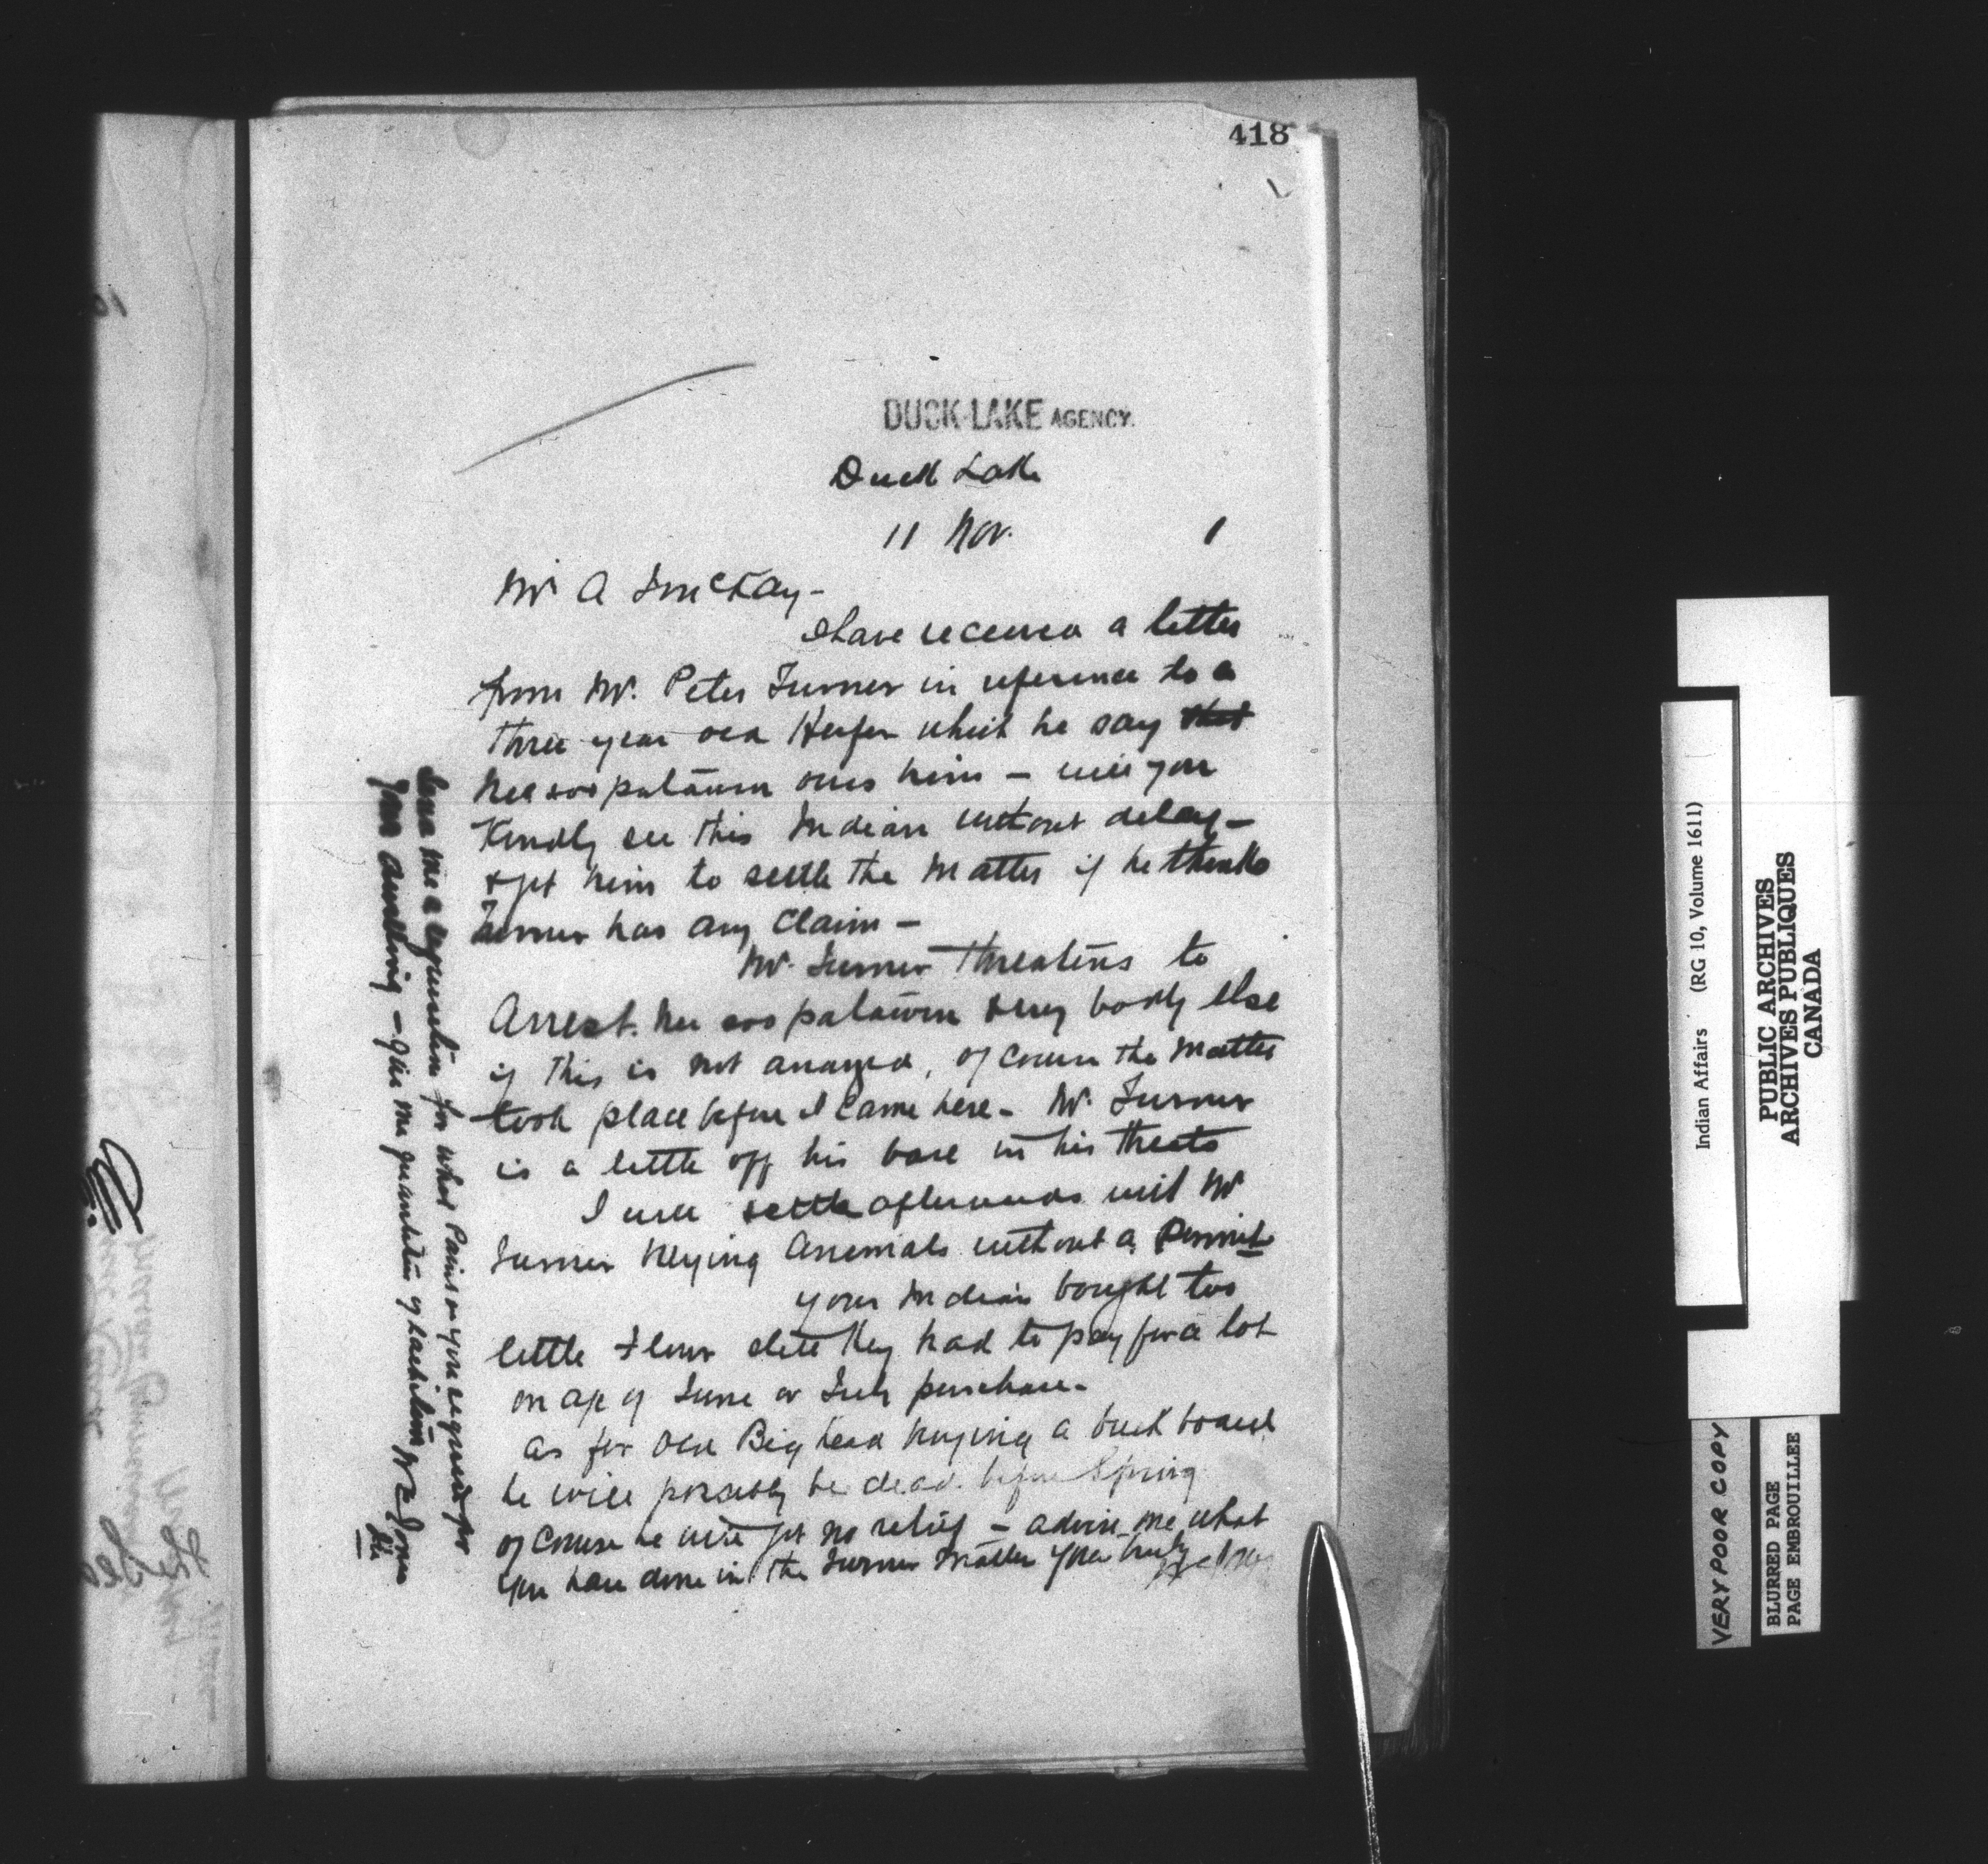 418
DUCK LAKE AGENCY.
Duck Lake
11 Nov. 1
Mr A J McKay -
I have received a letter
from Mr. Peter Turner in reference to a
three year old Heifer which he say that
owes him - will you
Kindly see this Indian without delay -
& get him to settle the matter if he thinks
Turner has any claim -
Mr. Turner threatens to
Arrest. & every body else
if this is not arranged, of course the matter
took place before I came here - Mr. Turner
is a little off his base in his threats
I will settle afterwards with Mr
Turner buying Animals without a Permit
your Indians bought too
little Flour still they had to pay for a lot
on a/c of June or July purchase -
as for Old Big head buying a buck board
he will possibly be dead before Spring
of course he will get no relief - advise me what
you have done in the Turner matter Yours truly
Send me a requisition for what Paris you require for
your - give me quantities
Indian Affairs (RG 10, Volume 1611)
PUBLIC ARCHIVES
ARCHIVES PUBLIQUES
CANADA
VERY POOR COPY
BLURRED PAGE
PAGE EMBROUILLEE